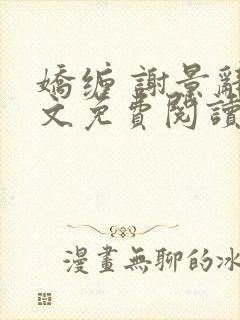 嬌缠 謝景辭
文免費閱讀
漫畫無聊的冰